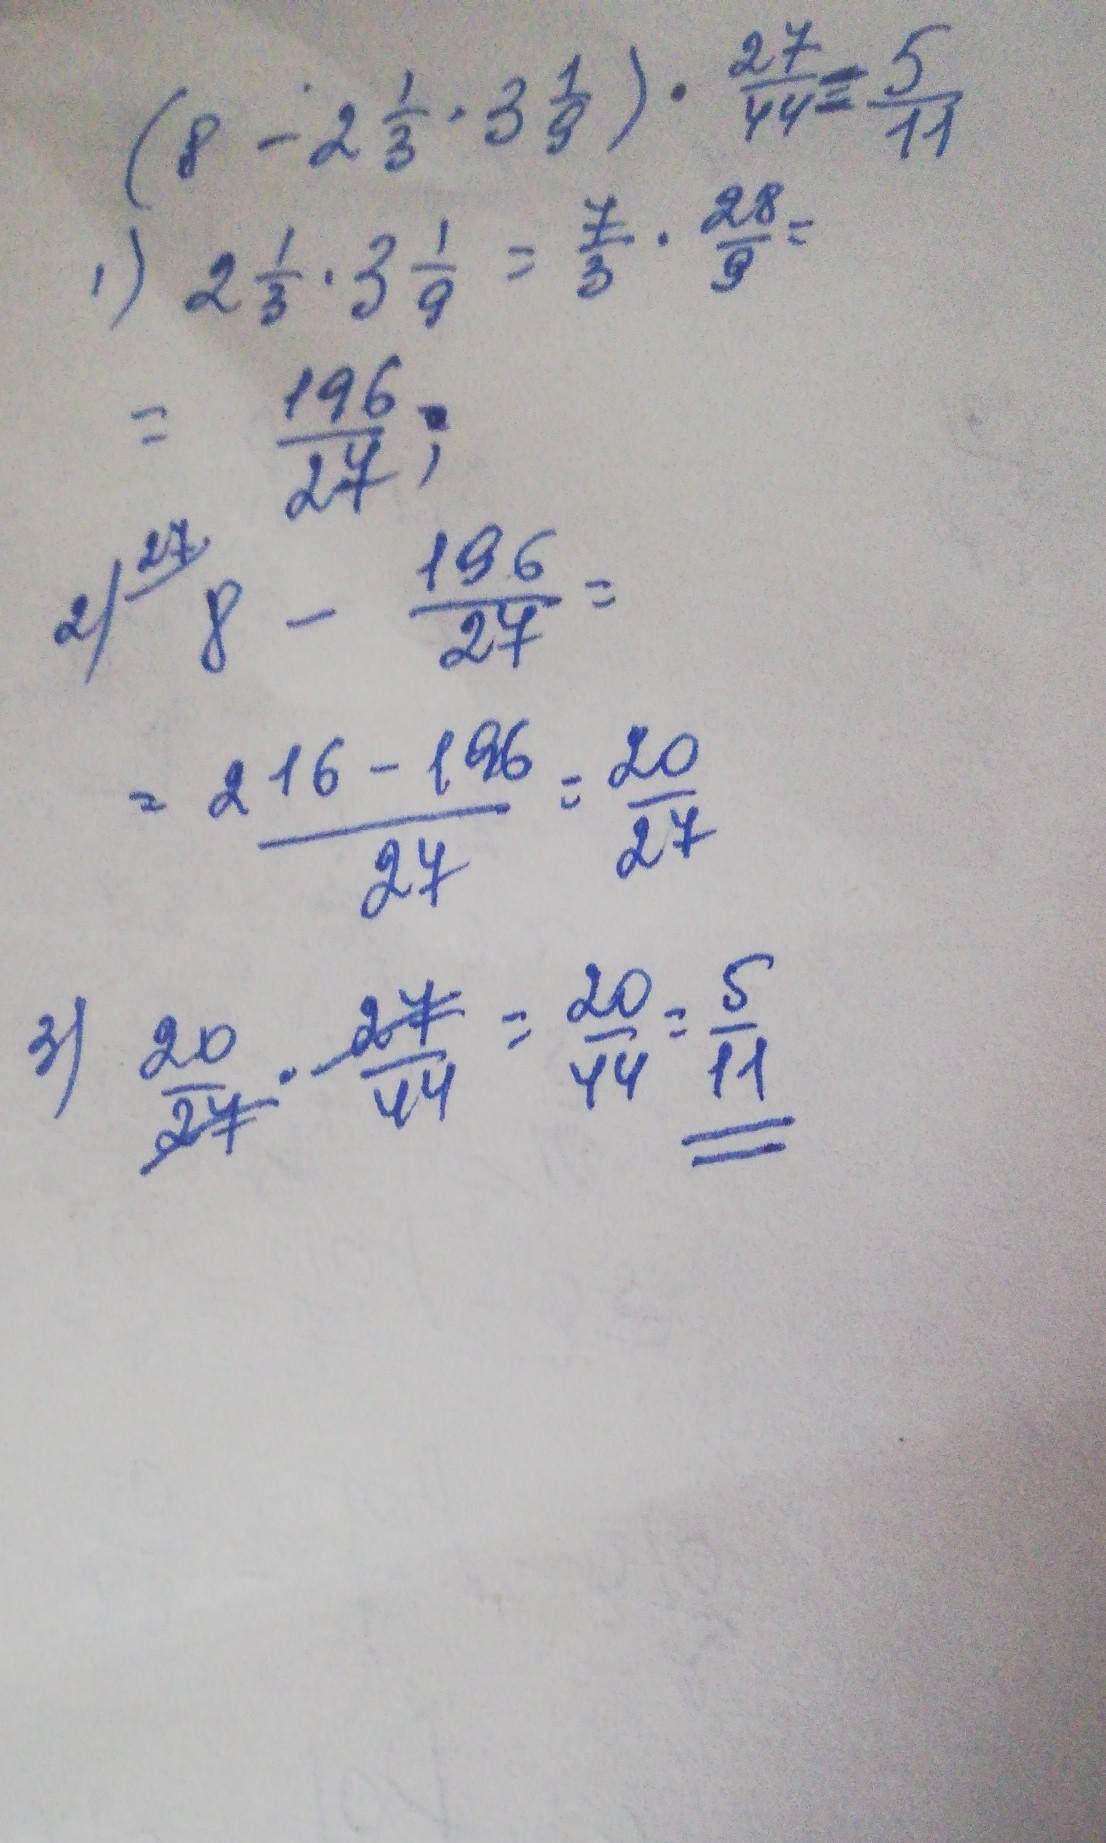 (8 - 2 1/3 · 3 1/9) · 27/44 = 5/11
1) 2 1/3 · 3 1/9 = 7/3 · 28/9 =
= 196/27 ;
2) 27/ 8 - 196/27 =
= 216 - 196/27 = 20/27
3) 20/27 · 27/44 = 20/44 = 5/11